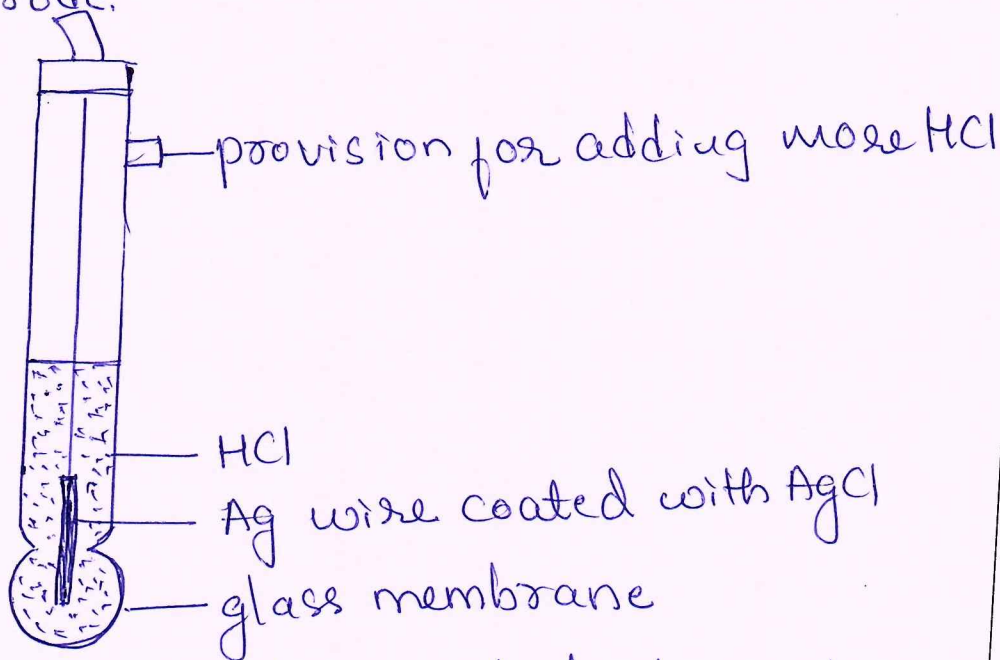 provision for adding more HCl
HCl
Ag wire coated with AgCl
glass membrane